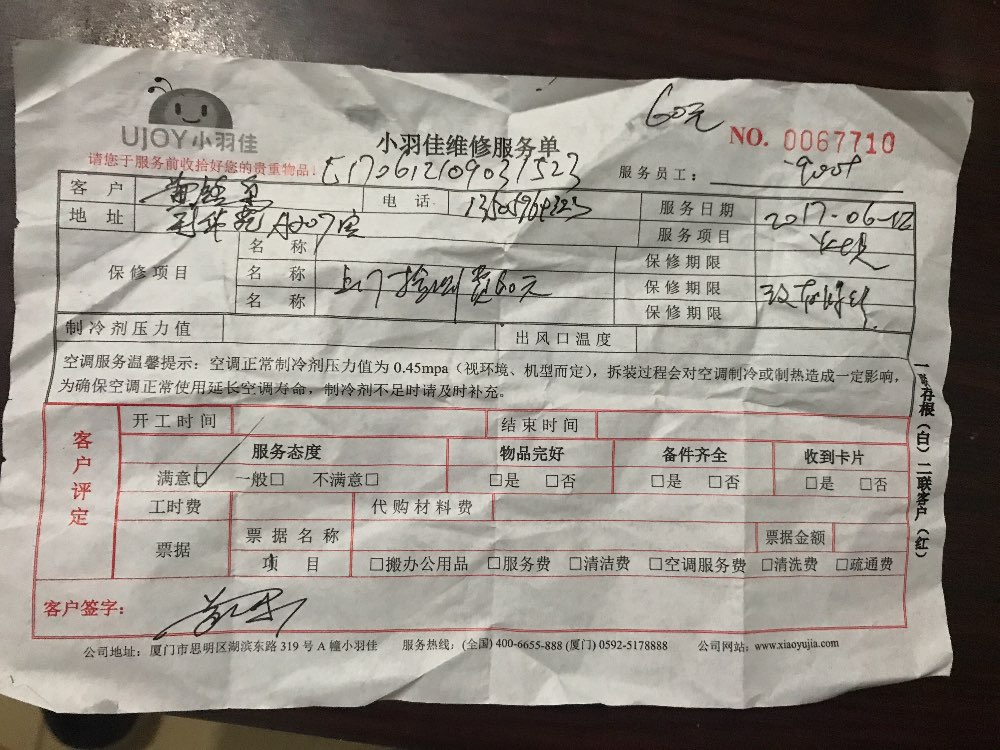 60元
UJOY小羽佳
小羽佳维修服务单
NO. 0067710
请您于服务前收拾好您的贵重物品!
服务员工:
客户
电话
服务日期 2017-06-12
地址
服务项目
保修项目
名称
保修期限
名称 上门检测费60元
保修期限
名称
保修期限
制冷剂压力值
出风口温度
空调服务温馨提示:空调正常制冷剂压力值为 0.45mpa(视环境、机型而定),拆装过程会对空调制冷或制热造成一定影响,
为确保空调正常使用延长空调寿命,制冷剂不足时请及时补充。
客户评定
开工时间
结束时间
服务态度
物品完好
备件齐全
收到卡片
满意☑ 一般□ 不满意□
□是 □否
□是 □否
□是 □否
工时费
代购材料费
票据
票据名称
票据金额
项目
□搬办公用品 □服务费 □清洁费 □空调服务费 □清洗费 □疏通费
客户签字:
公司地址:厦门市思明区湖滨东路 319 号 A 幢小羽佳 服务热线:(全国) 400-6655-888 (厦门) 0592-5178888 公司网站:www.xiaoyujia.com
一联存根(白)二联客户(红)